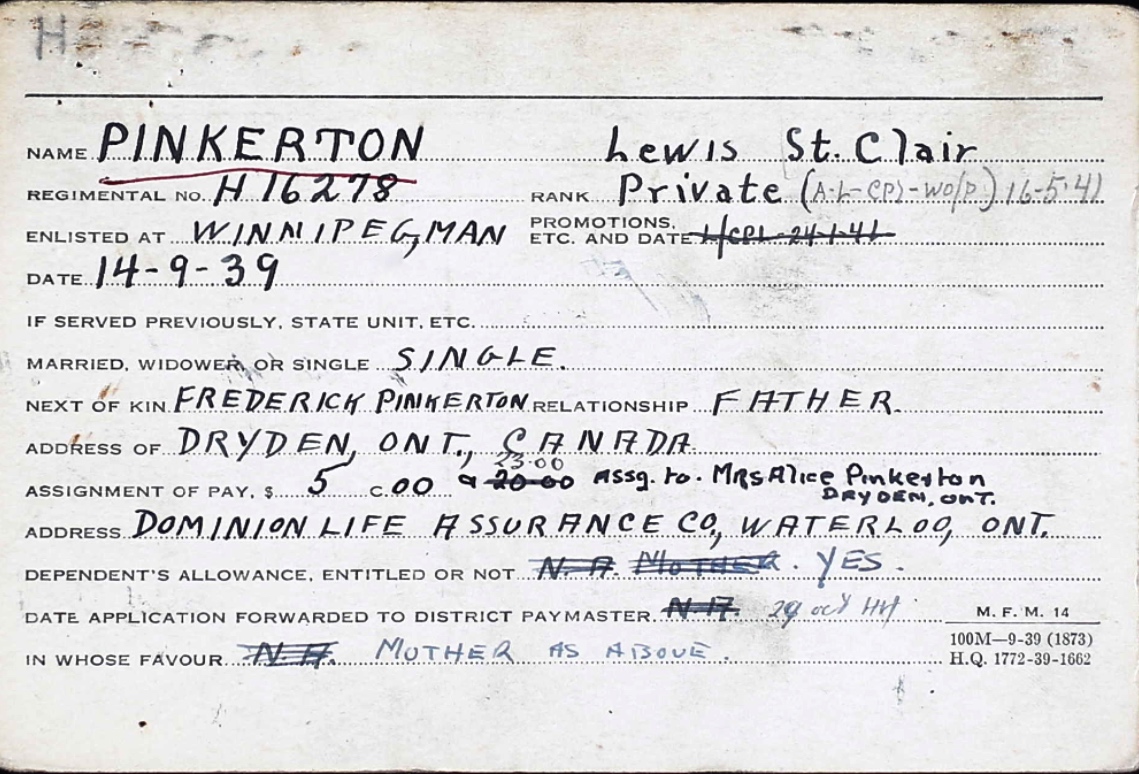 H
NAME PINKERTON Lewis St. Clair
REGIMENTAL NO. H 16278 RANK Private (A-L-CPL-WO/P.) 16-5-41
ENLISTED AT WINNIPEG, MAN PROMOTIONS, ETC. AND DATE L/CPL-24-1-41
DATE 14-9-39
IF SERVED PREVIOUSLY, STATE UNIT, ETC.
MARRIED, WIDOWER, OR SINGLE SINGLE.
NEXT OF KIN FREDERICK PINKERTON RELATIONSHIP FATHER.
ADDRESS OF DRYDEN, ONT., CANADA
23.00
ASSIGNMENT OF PAY, $ 5 C. 00 20.00 Assg. to. Mrs Alice Pinkerton
DRYDEN, ONT.
ADDRESS DOMINION LIFE ASSURANCE CO., WATERLOO, ONT.
DEPENDENT'S ALLOWANCE, ENTITLED OR NOT N.A. MOTHER. YES.
DATE APPLICATION FORWARDED TO DISTRICT PAYMASTER N.A. 29 oct
M. F. M. 14
IN WHOSE FAVOUR N.A. MOTHER AS ABOVE.
100M—9-39 (1873)
H.Q. 1772-39-1662